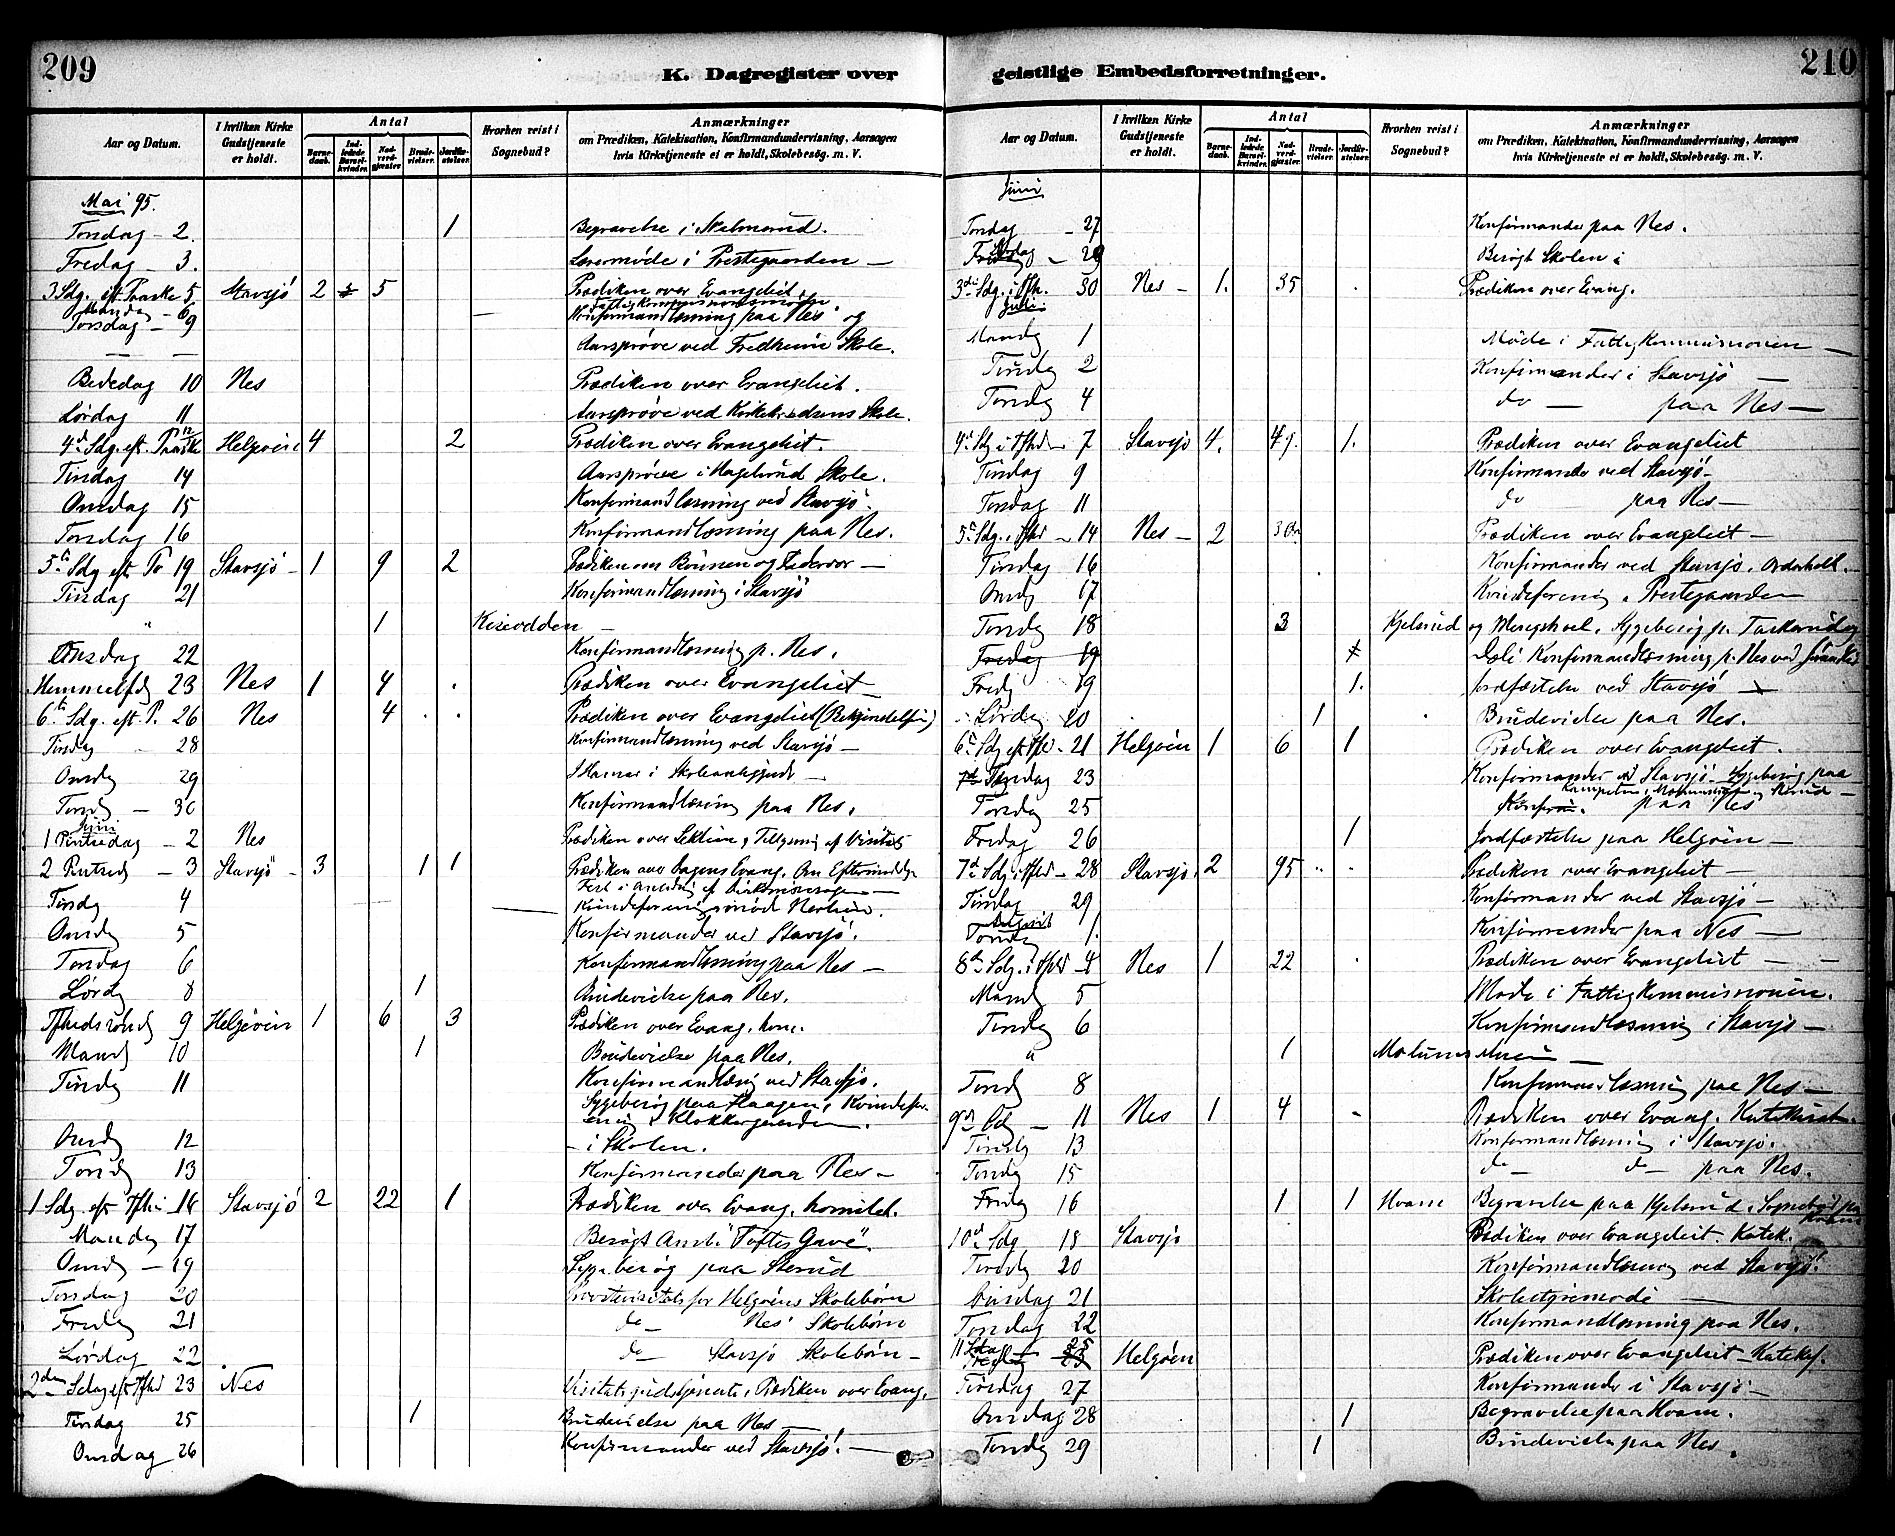 209
K. Dagregister over
Aar og Datum.
I hvilken Kirke Gudstjeneste er holdt.
Antal
Barnedaab.
Indledede Barselkvinder.
Nadverdgjæster.
Brudevielser.
Jordfæstelser.
Hvorhen reist i Sognebud?
Anmærkninger
om Prædiken, Katekisation, Konfirmandundervisning, Aarsagen
hvis Kirketjeneste ei er holdt, Skolebesög. m. V.
Mai 95.
Torsdag - 2. 1 Begravelse i
Fredag - 3. Lærermøde i Prestegaarden -
3 Sdg. eft. Paaske 5 Stavsjö 2 5 Prædiken over Evangeliet.
Mandag - 6
Torsdag - 9 Konfirmandlæsning paa Nes og
Aarsprøve ved Fredheim Skole.
Bededag 10 Nes Prædiken over Evangeliet.
Lørdag 11 Aarsprøve ved Skole.
4de Sdg. eft. Paaske 12 Helgøen 4 2 Prædiken over Evangeliet.
Tirsdag 14 Aarsprøve i Hagelund Skole.
Onsdag 15 Konfirmandlæsning ved Stavsjö.
Torsdag 16 Konfirmandlæsning paa Nes.
5te Sdg eft Pa 19 Stavsjö - 1 9 2 Prædiken om Bönnen og Fadervor -
Tirsdag 21 Konfirmandlæsning i Stavsjö
" 1 Kiseodden -
Onsdag 22 Konfirmandlæsning p. Nes.
Himmelfdg 23 Nes 1 4 . Prædiken over Evangeliet -
6te Sdg. eft. P. 26 Nes 4 . . Prædiken over Evangeliet
Tirsdag - 28 Konfirmandlæsning ved Stavsjö -
Onsdg 29 I Hamar i
Torsd - 30 Konfirmandlæsning paa Nes.
Juni
1 Pintsedag - 2 Nes Prædiken over Lektien, af Visitats
2 Pintsed - 3 Stavsjö - 3 1 1 Prædiken over Dagens Evang. Om Eftermiddg
Fest i Anledng af
Tirsdg 4 Kvindeforeningsmöde
Onsdg 5 Konfirmander ved Stavsjö.
Torsdag 6 Konfirmandlæsning paa Nes -
Lørdg 8 1 Brudevielse paa Nes.
9 Helgöen 1 6 3 Prædiken over Evang. hom.
Mand 10 1 Brudevielse paa Nes.
Tirsdg 11 Konfirmandlæsng ved Stavsjö.
Sygebesög paa Kvindefor-
ening i Klokkergaarden.
Onsdg 12 - i Skolen.
Torsdg 13 Konfirmander paa Nes -
1 Sdg. eft 16 Stavsjö 2 22 1 Prædiken over Evang. homilet.
Mandag 17 Besögt "Toftes Gave".
Onsdg - 19 Sygebesög paa Sterud
Torsdag 20 Provstevisitats for Helgøens Skolebørn
Fredag 21 do - Nes' Skolebørn
Lørdag 22 do - Stavsjö Skolebørn -
2den Sdag eft Tfhd 23 Nes Visitatsgudstjeneste, Prædiken over Evang.
Tirsdag 25 1 Brudevielse paa Nes -
Onsdag 26 Konfirmander ved Stavsjö. -
geistlige Embedsforretninger.
210
Aar og Datum.
I hvilken Kirke Gudstjeneste er holdt.
Antal
Barnedaab.
Indledede Barselkvinder.
Nadverdgjæster.
Brudevielser.
Jordfæstelser.
Hvorhen reist i Sognebud?
Anmærkninger
om Prædiken, Katekisation, Konfirmandundervisning, Aarsagen
hvis Kirketjeneste ei er holdt, Skolebesög. m. V.
Juni
Torsdag - 27 Konfirmander paa Nes.
Besögt Skolen i
3die Sdg. i Tfh. 30 Nes - 1. 35 . Prædiken over Evang.
Juli
Mandg 1 Møde i Fattigkommissionen -
Tirsdg 2 Konfirmander i Stavsjö -
Torsdg 4 do - paa Nes -
4de Sdg i Tfhd - 7 Stavsjö 4. 1. Prædiken over Evangeliet
Tirsdag 9 Konfirmander ved Stavsjö -
Torsdag 11 do paa Nes -
5te Sdg. i Tfhd - 14 Nes - 2 Prædiken over Evangeliet -
Tirsdag 16 Konfirmander ved Stavsjö.
Onsdg 17 Kvindeforening i Prestegaarden
Torsdg 18 3 Kjelsrud og Sygebesög p.
Fredag 19 Konfirmandlæsning p. Nes ved
Fredg 19 1. Jordfæstelse ved Stavsjö -
Lørdg 20 1 Brudevielse paa Nes.
6te Sdg eft Tfhd - 21 Helgöen 1 6 1 Prædiken over Evangeliet.
Tirsdag 23 Konfirmander ved Stavsjö - Sygebesög paa
Torsdag 25 paa Nes
Fredag 26 1 Jordfæstelse paa Helgöen -
7de Sdg. i Tfhd - 28 Stavsjö 2 95 . . Prædiken over Evangeliet -
Tirsdag 29 Konfirmander ved Stavsjö -
August
Torsdg 1. Konfirmander paa Nes -
8de Sdg. i Tfhd - 4 Nes 1 22 . Prædiken over Evangeliet - -
Mandg 5 Møde i Fattigkommissionen.
Tirsdg 6 Konfirmandlæsning i Stavsjö -
" 1
Torsdg 8 Konfirmandlæsning paa Nes -
9de Sdg - 11 Nes 1 4 - Prædiken over Evang.
Tirsdg 13 Konfirmandlæsning i Stavsjö.
Torsdg 15 do - do - paa Nes.
Fredag 16 1 1 Hvam Begravelse paa Kjelsrud, Sognebud paa
Hvam
10de Sdg 18 Stavsjö Prædiken over Evangeliet. Katek.
Tirsdg 20 Konfirmandlæsning ved Stavsjö.
Onsdag 21 Skolestyremöde -
Torsdag 22 Konfirmandlæsning paa Nes.
11 Sdag - 25 Helgøen Prædiken over Evangeliet - Katek.
Tirsdag 27 Konfirmander i Stavsjö -
Onsdag 28 1 Begravelse paa Hvam.
Torsdg 29 1 Brudevielse paa Nes.